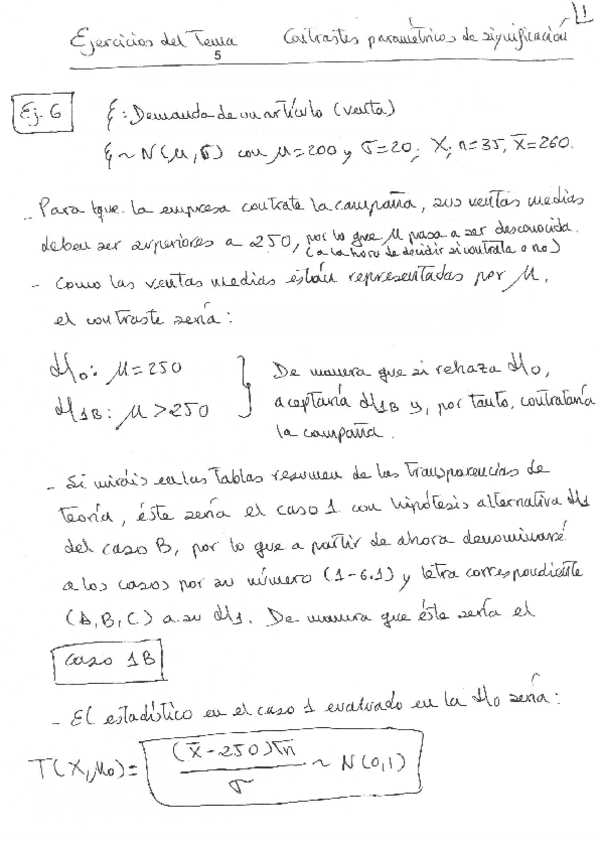 1
Ejercicios del Tema 5 Contrastes paramétricos de significación
Ej. 6 ξ: Demanda de un artículo (venta)
ξ ~ N(μ, σ) con μ=200 y σ=20; X; n=35, x̄=260.
- Para que la empresa contrate la campaña, sus ventas medias
deben ser superiores a 250, por lo que μ pasa a ser desconocida.
(a la hora de decidir si contrata o no)
- Como las ventas medias están representadas por μ,
el contraste sería:
H₀: μ=250 } De manera que si rechaza H₀,
H₁B: μ>250 aceptaría H₁B y, por tanto, contrataría
la campaña.
- Si miráis en las Tablas resumen de las Transparencias de
teoría, éste sería el caso 1 con hipótesis alternativa H₁
del caso B, por lo que a partir de ahora denominaré
a los casos por su número (1-6.1) y letra correspondiente
(A, B, C) a su H₁. De manera que éste sería el
caso 1B
- El estadístico en el caso 1 evaluado en la H₀ sería:
T(X, μ₀) = (x̄-250)√n / σ ~ N(0,1)